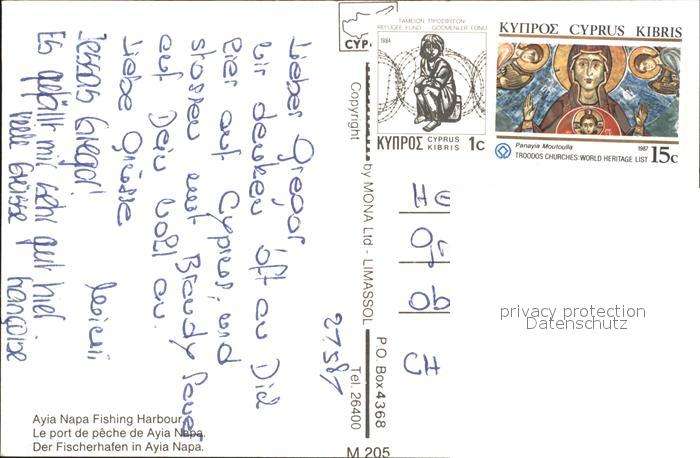 27.5.87
Lieber Gregor
Wir denken oft an Dich
hier auf Cyprus, und
stossen mit Brandy Sauer
auf Dein Wohl an.
Liebe Grüsse
Gregi
Es gefällt mir sehr gut hier
viele Grüsse Françoise
Ayia Napa Fishing Harbour.
Le port de pêche de Ayia Napa.
Der Fischerhafen in Ayia Napa.
Copyright by MONA Ltd - LIMASSOL
P.O. Box 4368
Tel. 26400
M 205
CYP
1984
ΤΑΜΕΙΟΝ ΠΡΟΣΦΥΓΩΝ
REFUGEE FUND GÖÇMENLER FONU
ΚΥΠΡΟΣ CYPRUS KIBRIS 1c
ΚΥΠΡΟΣ CYPRUS KIBRIS
Panayia Moutoulla 1987
TROODOS CHURCHES: WORLD HERITAGE LIST 15c
HE
Ob
CH
privacy protection
Datenschutz